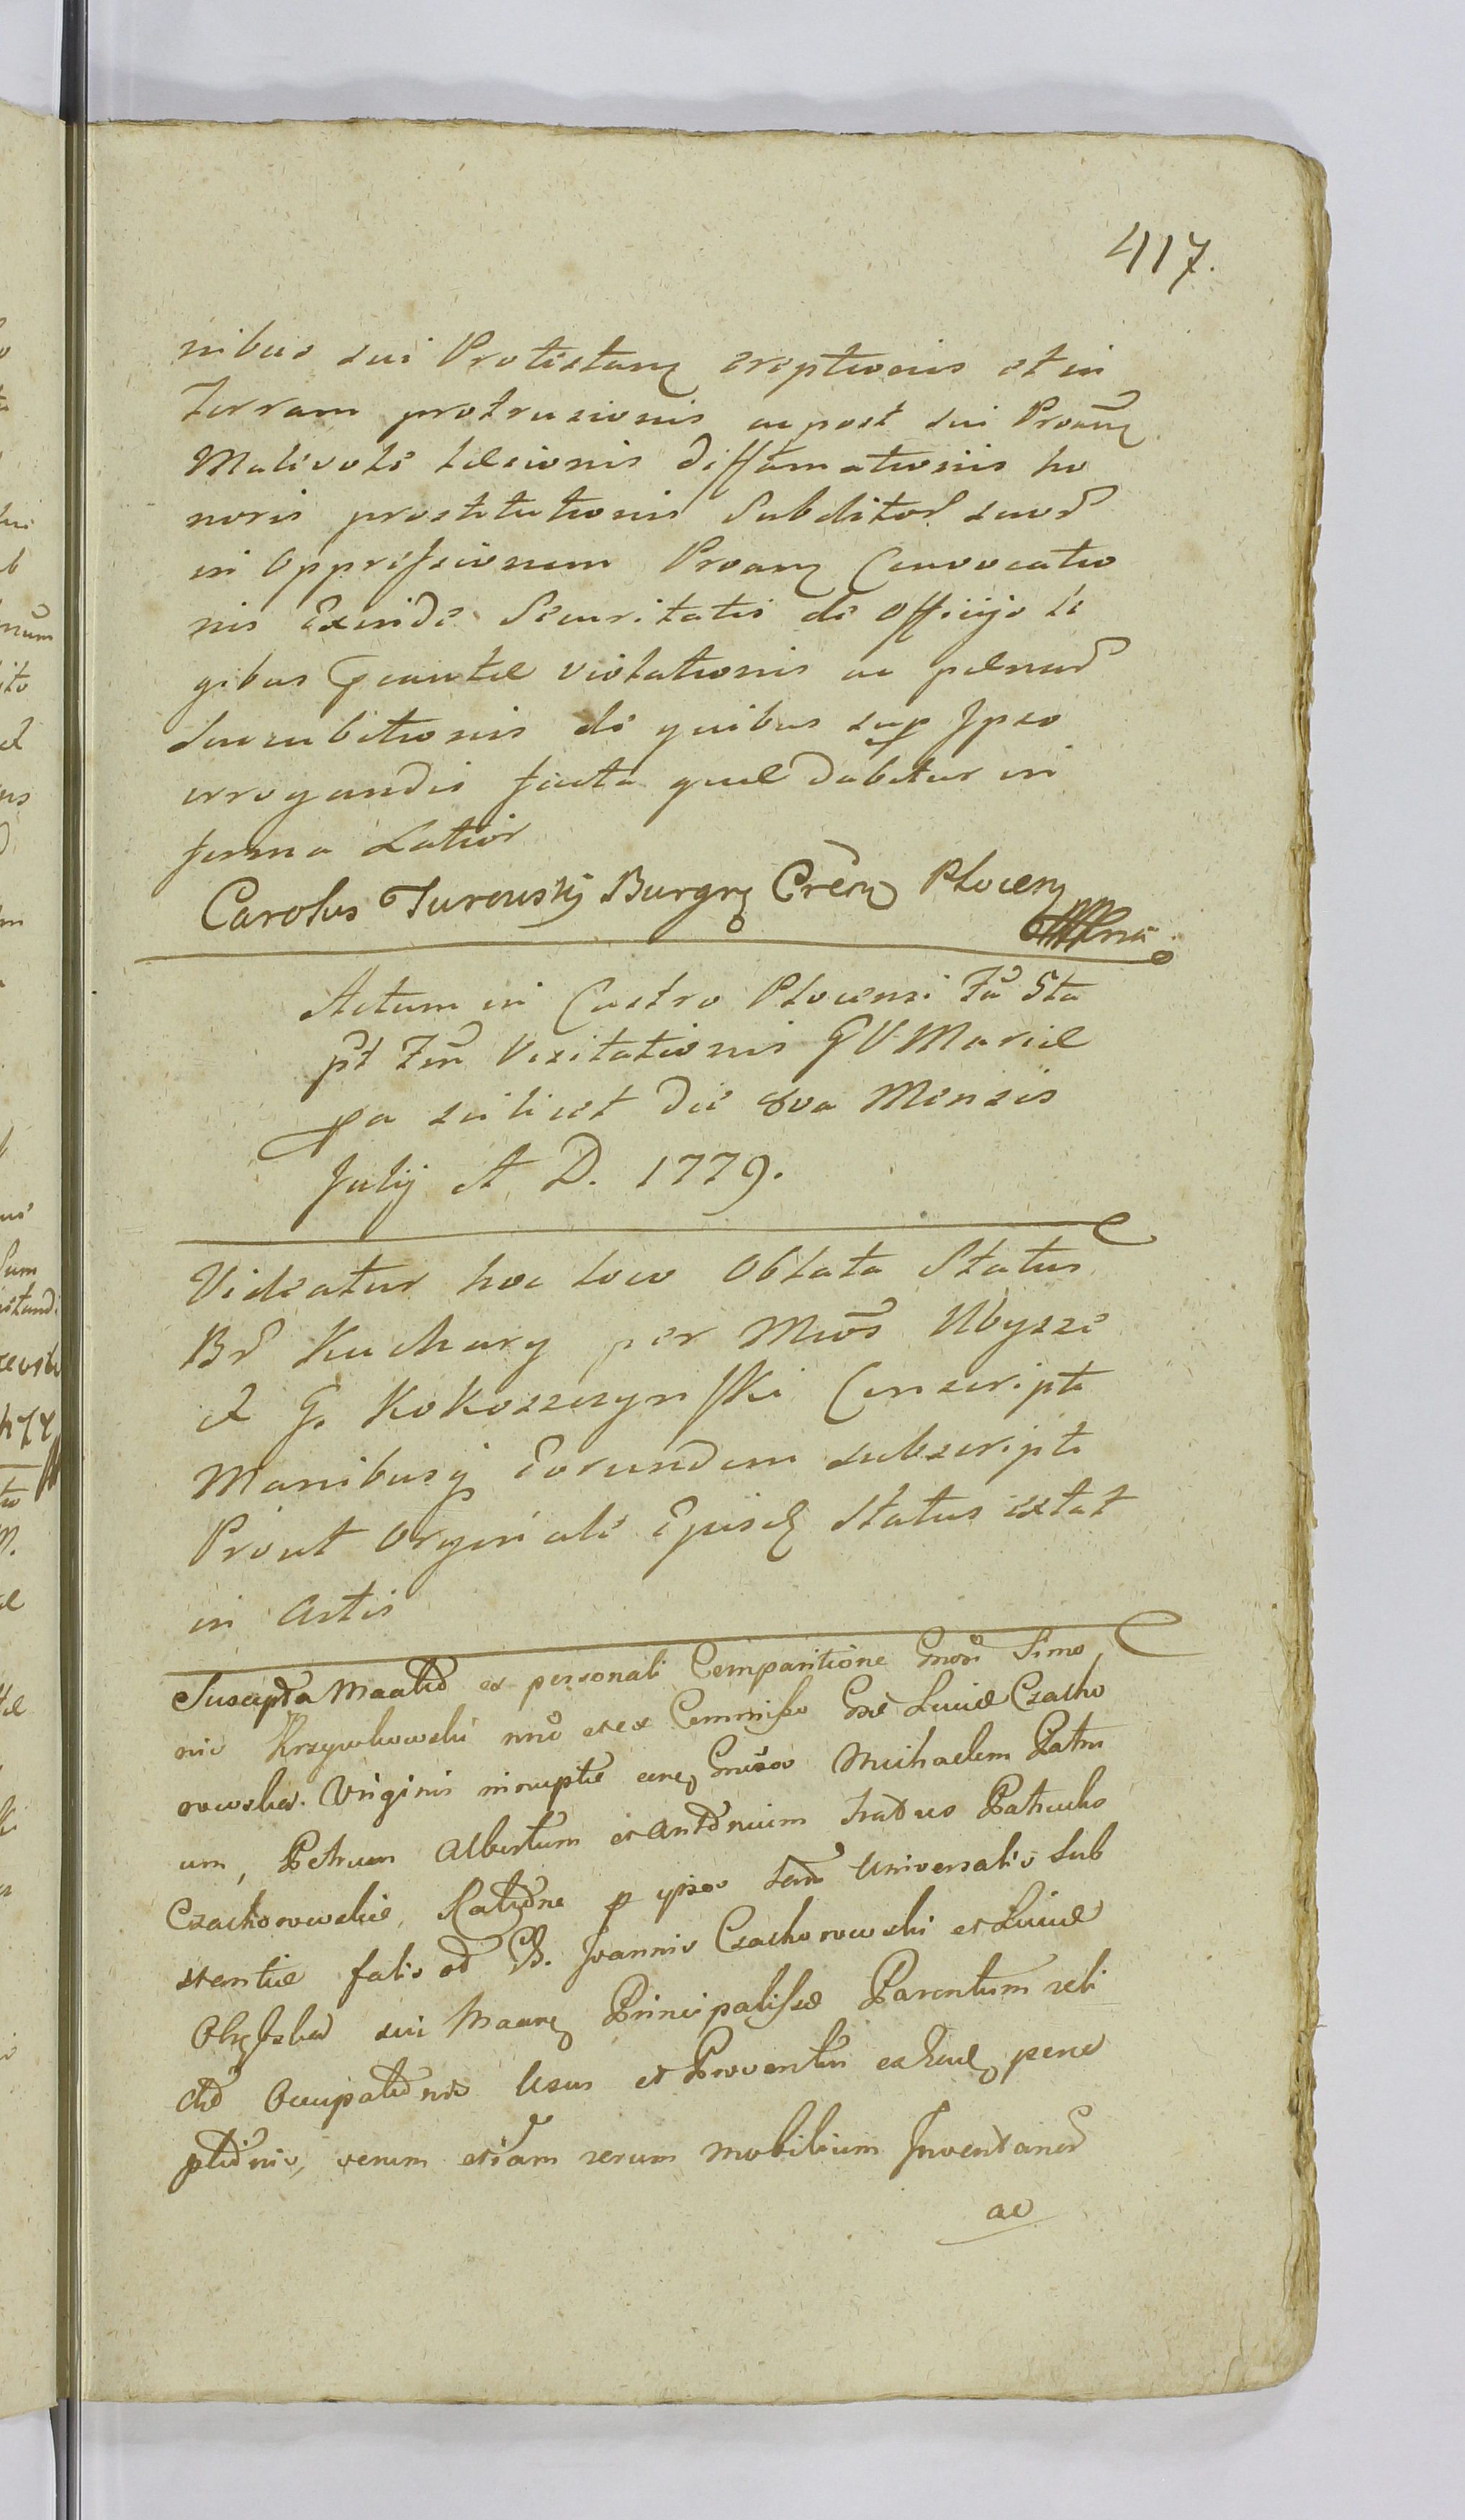 417.
nibus sui Protestanꝫ ereptionis et in
terram protrusionis ac post sui Proan̄ꝫ
Malevole læsionis diffamationis ho
noris prostitutionis Subditor suor
in Oppressionem Proanꝫ Convocatio
nis Exinde Securitatis de Officijs le
gibus Cautæ violationis ac pænar
Succubitionis de quibus sup Ipso
irrogandis facta quæ dabitur in
forma Latior
Carolus Turowskj Burgrꝫ Crēnꝫ Plocenꝫ
Actum in Castro Plocensi Fa 5ta
pt Fm Visitationis G V Mariæ
pa scilicet die 8va Mensis
Julij A D. 1779.
Videatur hoc loco Oblata Status
Br Kuchary per Mcos Ubysze
et G. Kokoszczynski Conscripti
Manibusq Eorundem subscripti
Prout Originale Ejusdꝫ Status extat
in Actis
Suscepta Maatio ex personali Comparitione Gnosi Simo
nis Krzywkowski mno et ex Commisso Gsæ Luciæ Czacho
rowska. Virginis innuptæ Gnosos Michaelem Patru
um, Petrum Albertum et Antonium fratres Patrueles
Czachorowskie, Ratione p ipsos Universalis Sub
stantiæ fatis od G. Joannis Czachorowski et Luciæ
sui Maanꝫ Principalisse Parentum reli
ctæ Occupationis Usus et Proventu exhacꝫ perce
ptionis, verum etiam rerum mobilium Inventarior
ac